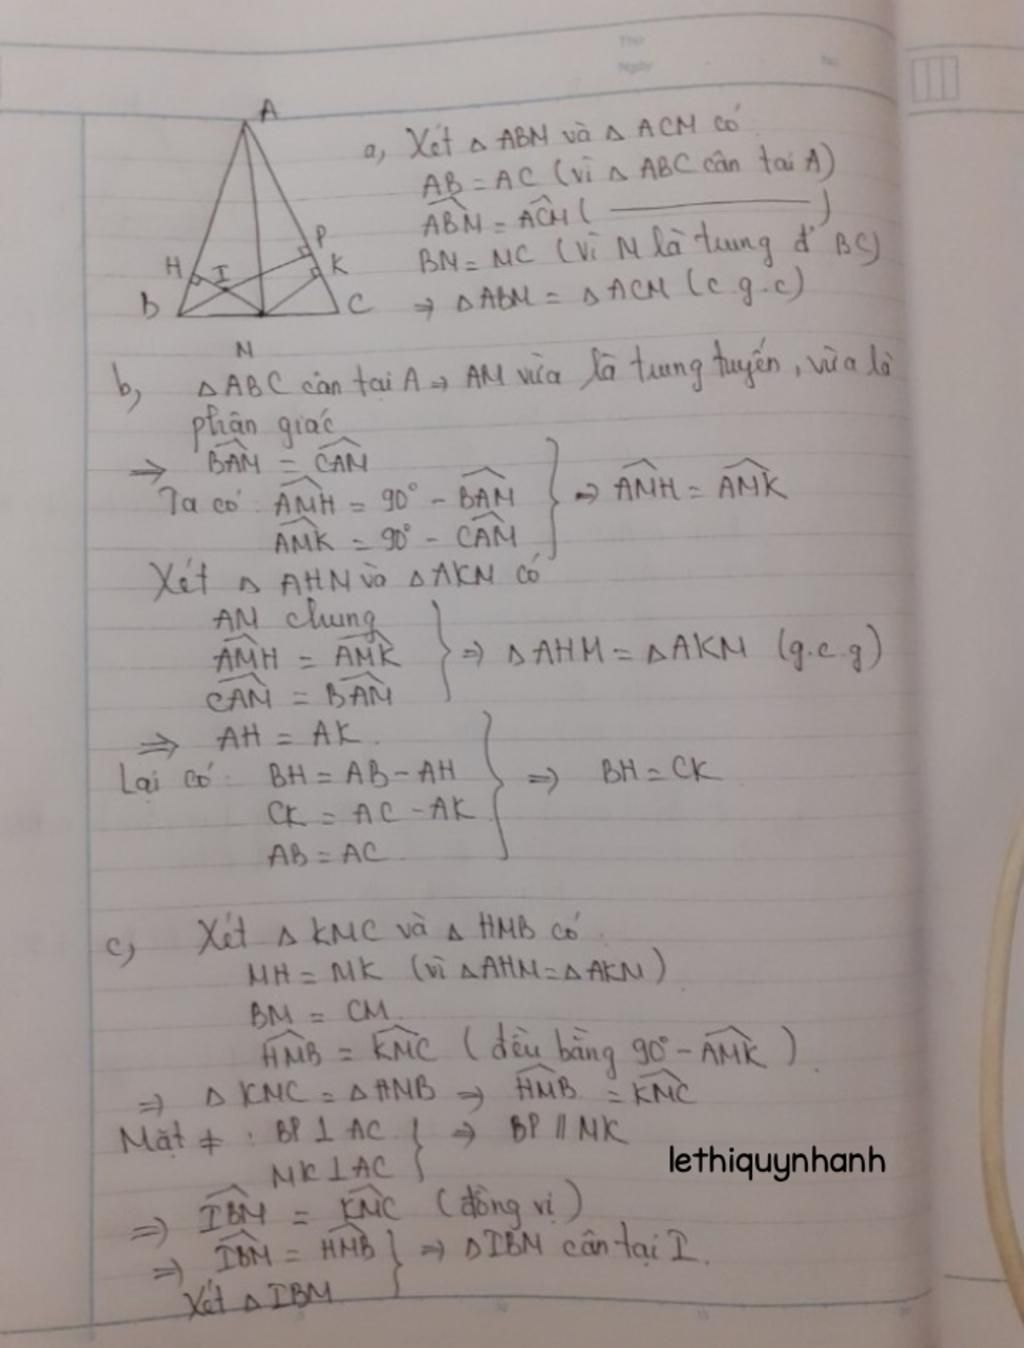 Thứ
Ngày
No.
A
H
I
P
K
B
C
M
a, Xét △ ABM và △ ACM có
AB = AC (vì △ ABC cân tại A)
ABM = ACM ( ———— )
BM = MC (vì M là trung đ' BC)
⇒ △ABM = △ACM (c.g.c)
b, △ABC cân tại A ⇒ AM vừa là trung tuyến, vừa là
phân giác
⇒ BAM = CAM
Ta có: AMH = 90° - BAM } ⇒ AMH = AMK
AMK = 90° - CAM
Xét △ AHM và △AKM có
AM chung
AMH = AMK } ⇒ △AHM = △AKM (g.c.g)
CAM = BAM
⇒ AH = AK.
Lại có: BH = AB - AH } ⇒ BH = CK
CK = AC - AK
AB = AC
c, Xét △ KMC và △ HMB có
MH = MK (vì △AHM = △AKM)
BM = CM
HMB = KMC (đều bằng 90° - AMK)
⇒ △ KMC = △HMB ⇒ HMB = KMC
Mặt ≠ : BP ⊥ AC } ⇒ BP // MK
MK ⊥ AC
lethiquynhanh
⇒ IBM = KMC (đồng vị)
⇒ IBM = HMB } ⇒ △IBM cân tại I.
Xét △ IBM